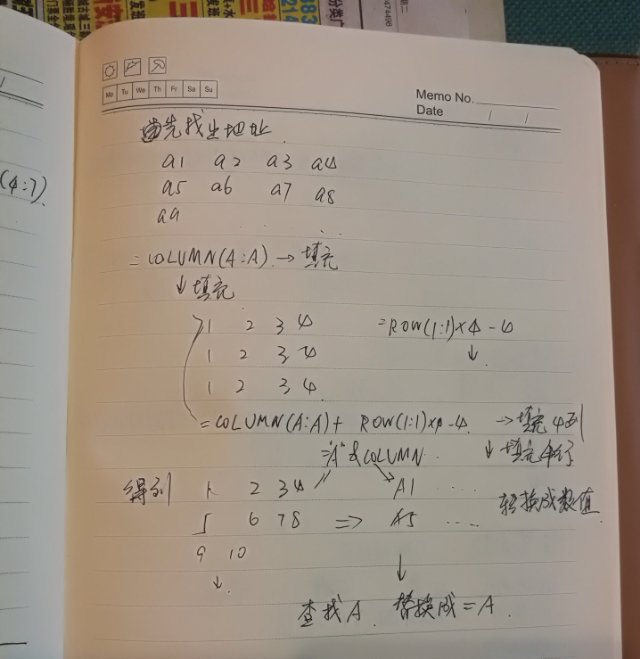 Memo No.
Mo Tu We Th Fr Sa Su
Date / /
首先找出地址
(4:7)
a1 a2 a3 a4
a5 a6 a7 a8
a9
=COLUMN(A:A) → 填充
↓填充
1 2 3 4 =ROW(1:1)×4-4
1 2 3 4 ↓
1 2 3 4
=COLUMN(A:A)+ ROW(1:1)×4-4 →填充4列
="A"&COLUMN ↓填充
得到 1 2 3 4 A1 ....
5 6 7 8 => A5 .... 转换成数值
9 10
↓ ↓
查找A 替换成=A